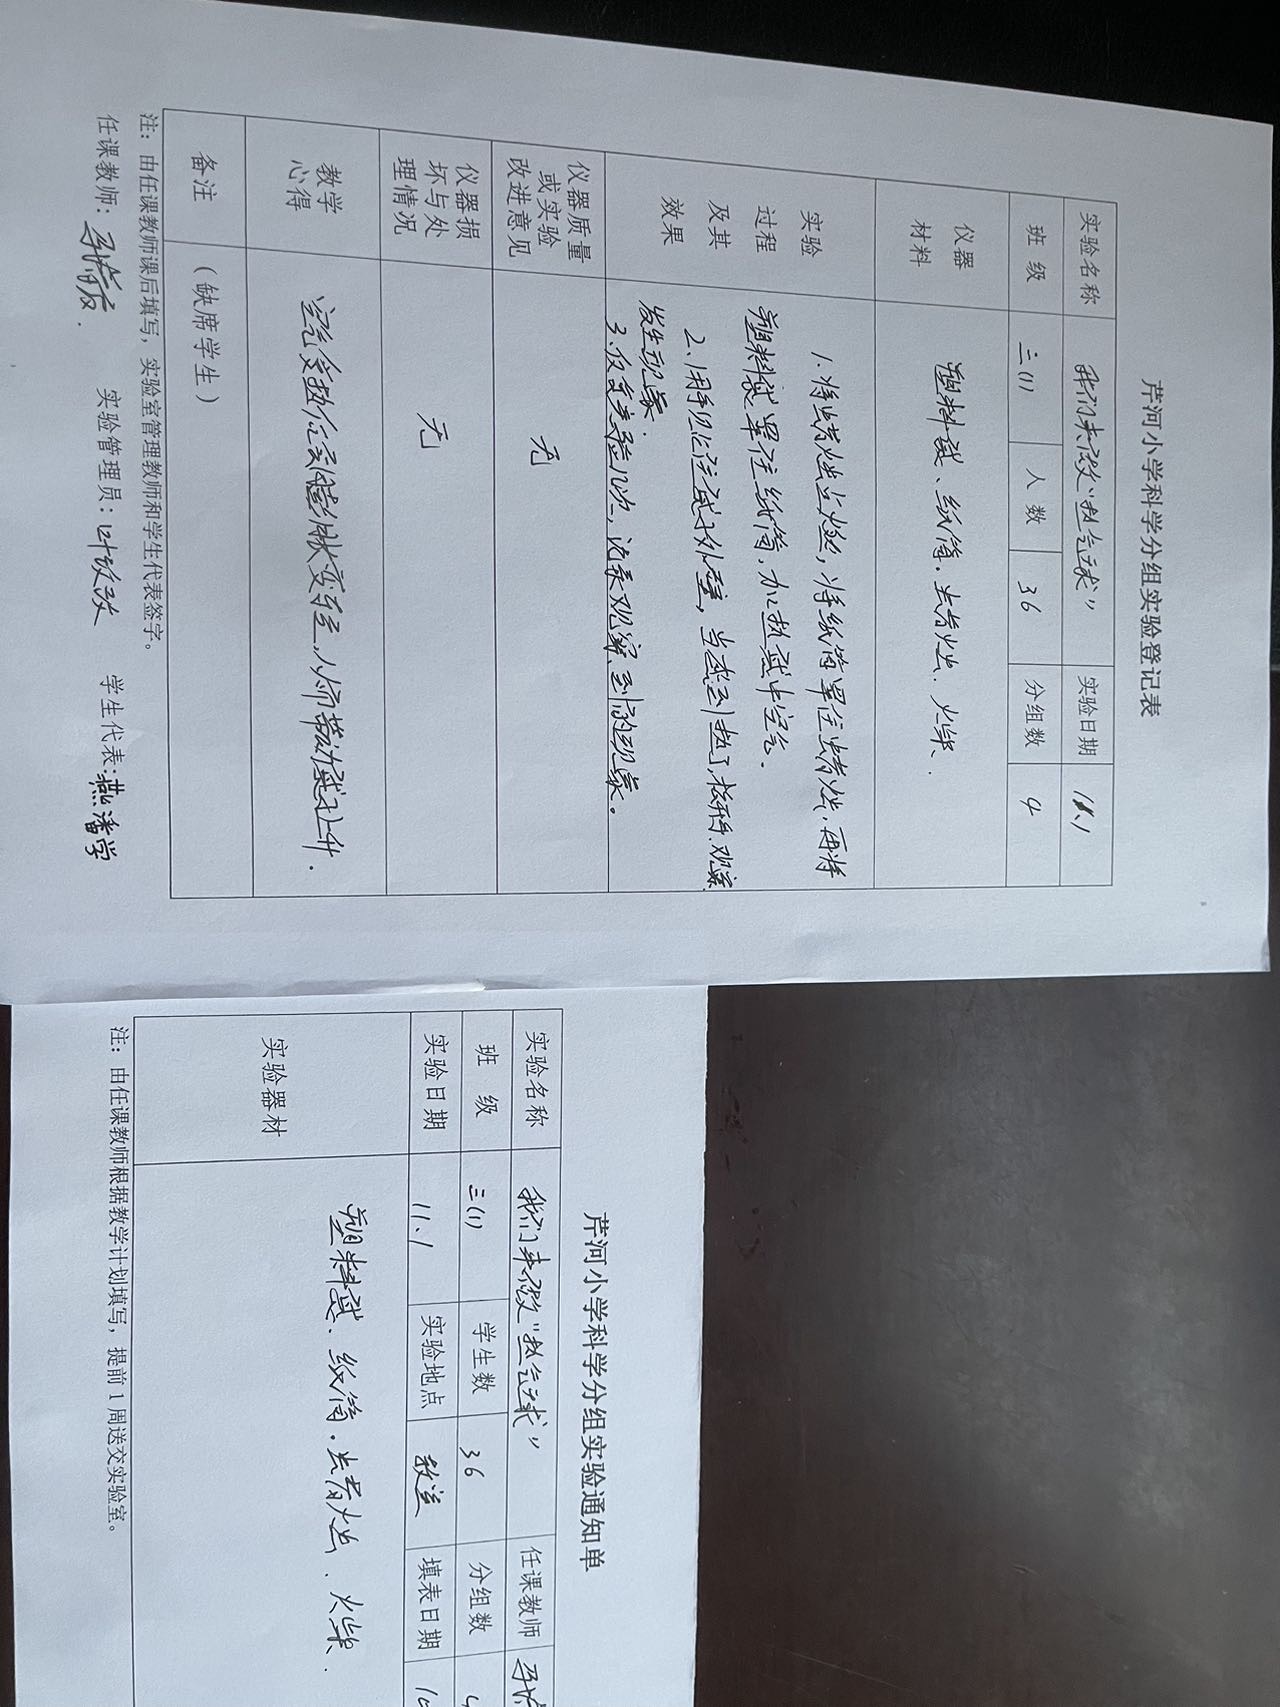 芹河小学科学分组实验登记表
实验名称 我们来做“热气球” 实验日期 11.1
班级 三(1) 人数 36 分组数 4
仪器材料 塑料袋、纸筒、蜡烛、火柴.
实验过程及其效果
1.将蜡烛点燃,将纸筒罩住蜡烛,再将
塑料袋罩住纸筒,加热袋中空气.
2.用手捏住袋子外壁,当感到热了,松开手.观察
发生现象.
3.反复实验几次,记录观察到的现象。
仪器质量或实验改进意见 无
仪器损坏与处理情况 无
教学心得 空气受热会膨胀变轻,从而带动袋子上升.
备注 (缺席学生)
注:由任课教师课后填写,实验室管理教师和学生代表签字。
任课教师: 实验管理员:叶改改 学生代表:燕潘学
芹河小学科学分组实验通知单
实验名称 我们来做“热气球” 任课教师
班级 三(1) 学生数 36 分组数 4
实验日期 11.1 实验地点 教室 填表日期
实验器材 塑料袋、纸筒、蜡烛、火柴.
注:由任课教师根据教学计划填写,提前1周送交实验室。